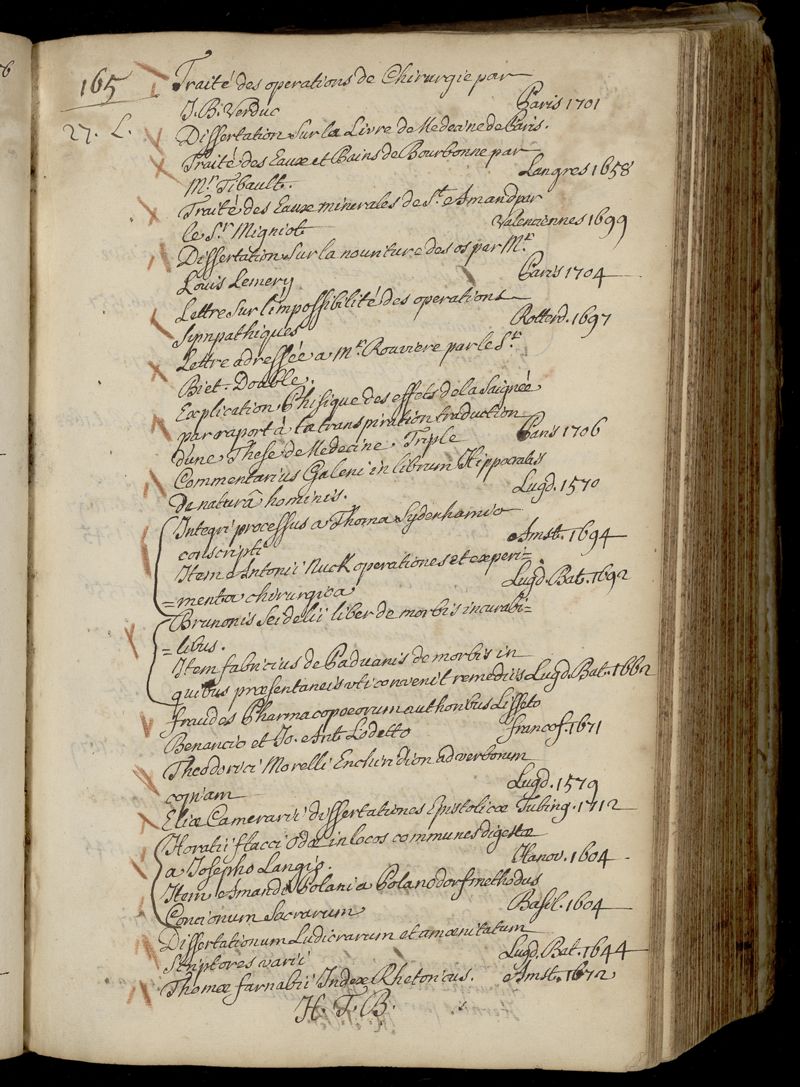 165
27. L.
Traité des operations de Chirurgie par
J. B. Verduc Paris 1701
Dissertation Sur la Livre de Medecine de Paris.
Traité des Eaux et Bains de Bourbonne par
Mr. Tibault. Langres 1658
Traité des Eaux minerales de St. Amand par
le Sr. Migniot Valenciennes 1699
Dissertation Sur la nouriture des os par Mr.
Louis Lemery Paris 1704
Lettre Sur l'impossibilité des operations
Sympathiques Rotterd. 1697
Lettre adressée a Mr. Rouviere par le Sr.
Biet. Double.
Explication Phisique des effets de la Saignée
par raport à la transpiration traduction
dune These de Medecine. Triple Paris 1706
Commentarius Galeni in librum Hippocratis
De naturâ hominis. Lugd. 1570
Integri processus a Thoma Sydenhamio
conscripti Amst. 1694
Item Antonii Nuck operationes et experi=
=menta chirurgica Lugd. Bat. 1692
Brunonis Seidelii liber de morbis incurabi=
=libus.
Item fabricius de Paduanis de morbis in
quibus præsentaneis uti convenit remediis Lugd. Bat. 1662
fraudes Pharmacopoeorum authoribus Lisseto
Benancio et Jo. Ant. Lodetto francof. 1671
Theodorici Morelli Enchiridion ad verborum
copiam Lugd. 1579
Eliæ Camerarii dissertationes Epistolicæ Tubing. 1712
Horatii flacci Odæ in locos communes digestæ
a Josepho Langio. Hanov. 1604
Item Amandi Polani a Polansdorf methodus
Concionum Sacrarum Basil. 1604
Dissertationum Ludicrarum et amœnitatum
Scriptores varii Lugd. Bat. 1644
Thomæ farnabii Index Rhetoricus. Amst. 1672
H. T. B.